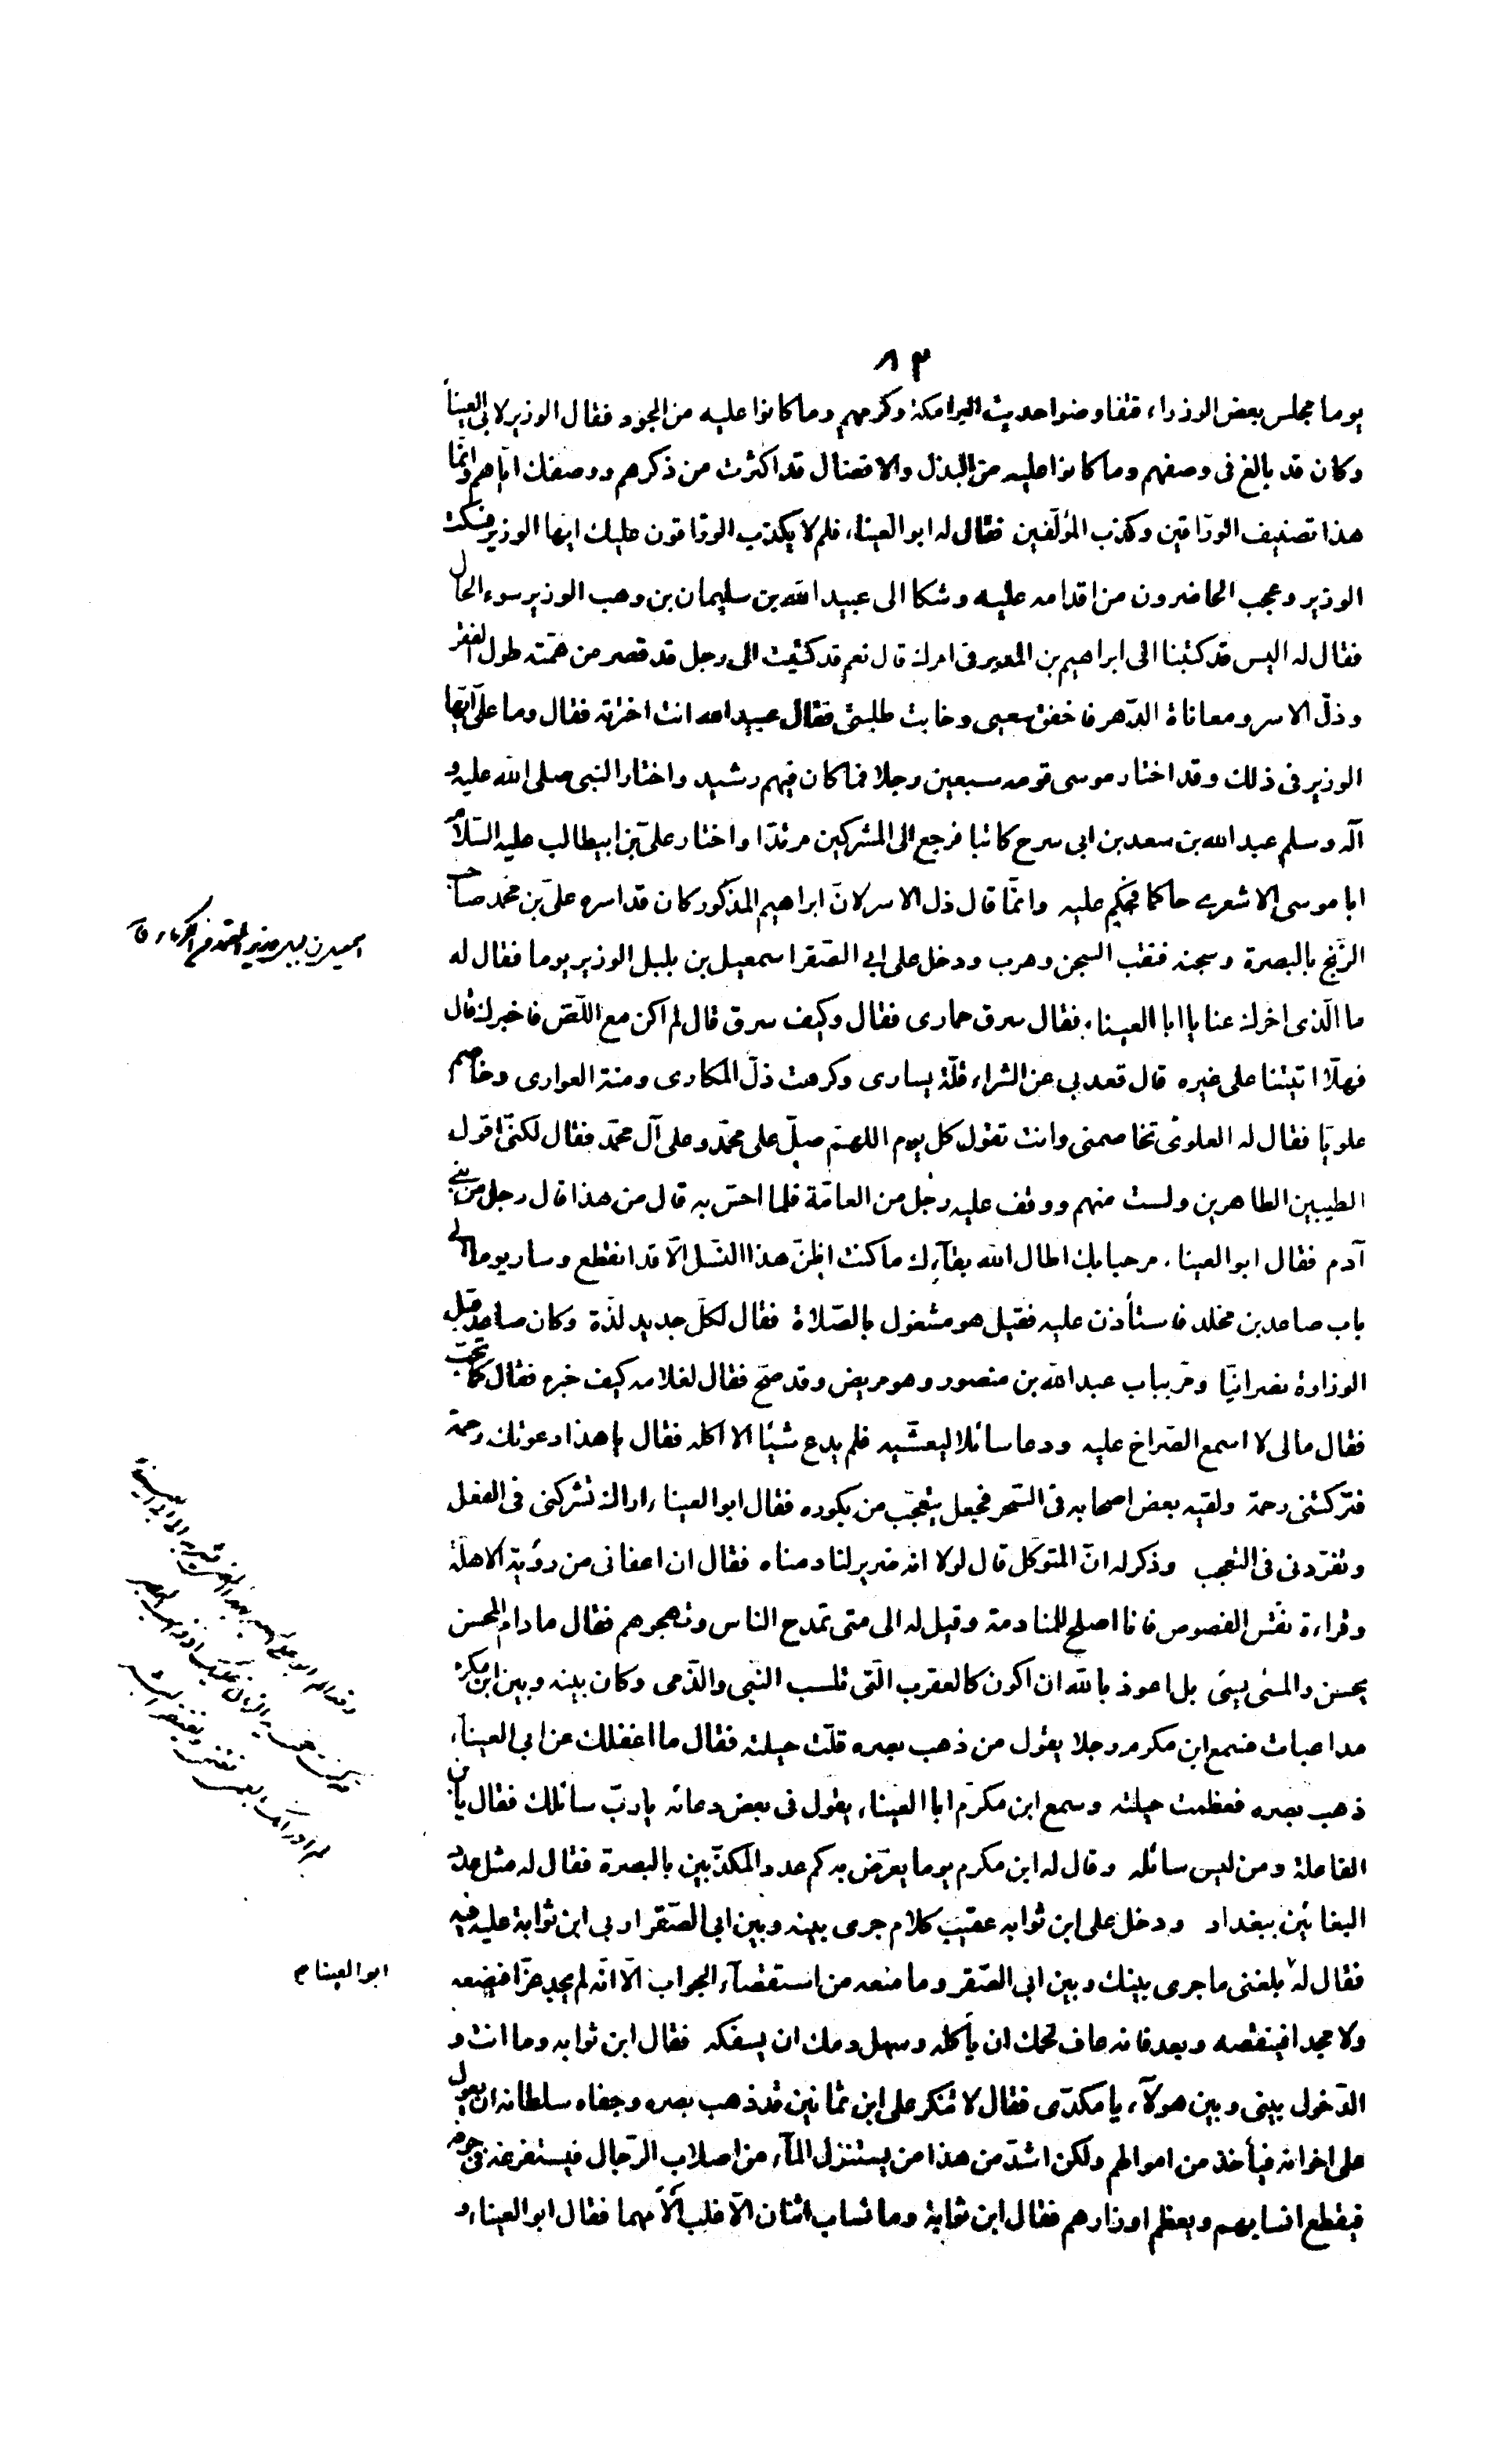 ٨٣
يوما مجلس بعض الوزراء فتفاوضوا حديث البرامكة وكرمهم وما كانوا عليه من الجود فقال الوزير لابى العيناء
وكان قد بالغ فى وصفهم وما كانوا عليه من البذل والافضال قد اكثرت من ذكرهم ووصفك اياهم وانما
هذا تصنيف الورّاقين وكذب المؤلّفين فقال له ابو العيناء فلم لا يكذب الورّاقون عليك ايها الوزير فسكت
الوزير وعجب الحاضرون من اقدامه عليه وشكا الى عبيد الله بن سليمان بن وهب الوزير سوء الحال
فقال له اليس قد كتبنا الى ابراهيم بن المدبر فى امرك قال نعم قد كتبت الى رجل قد قصر من همّته طول الفقر
وذلّ الاسر ومعاناة الدّهر فاخفق سعيى وخابت طلبتى فقال عبيد الله انت اخترته فقال وما علىّ ايّها
الوزير فى ذلك وقد اختار موسى قومه سبعين رجلا فما كان فيهم رشيد واختار النبى صلى الله عليه و
آله وسلم عبد الله بن سعد بن ابى سرح كاتبا فرجع الى المشركين مرتدّا واختار علىّ بن ابيطالب عليه السّلام
ابا موسى الاشعرى حاكما فحكم عليه وانّما قال ذل الاسر لانّ ابراهيم المذكور كان قد اسره علىّ بن محمد صاحب
الزّنج بالبصرة وسجنه فنقب السجن وهرب ودخل على ابى الصّقر اسمعيل بن بلبل الوزير يوما فقال له
ما الّذى اخرك عنا يا ابا العيناء فقال سرق حمارى فقال وكيف سرق قال لم اكن مع اللّصّ فاخبرك قال
فهلّا اتيتنا على غيره قال قعد بى عن الشراء قلّة يسارى وكرهت ذلّ المكارى ومنة العوارى وخاصم
علويّا فقال له العلوىّ تخاصمنى وانت تقول كل يوم اللهمّ صلّ على محمّد وعلى آل محمّد فقال لكنّى اقول
الطيبين الطاهرين ولست منهم ووقف عليه رجل من العامّة فلما احسّ به قال من هذا قال رجل من بنى
آدم فقال ابو العيناء مرحبا بك اطال الله بقآءك ما كنت اظنّ هذا النّسل الّا قد انقطع وسار يوما الى
باب صاعد بن مخلد فاستأذن عليه فقيل هو مشغول بالصّلاة فقال لكلّ جديد لذّة وكان صاعد قبل
الوزارة نصرانيّا ومرّ بباب عبد الله بن منصور وهو مريض وقد صحّ فقال لغلامه كيف خبره فقال كما تحبّ
فقال ما لى لا اسمع الصّراخ عليه ودعا سائلا ليعشّيه فلم يدع شيئا الا اكله فقال يا هذا دعوتك رحمة
فتركتنى رحمة ولقيه بعض اصحابه فى السّحر فجعل يتعجّب من بكوره فقال ابو العيناء اراك تشركنى فى الفعل
وتفرّدنى فى التعجب وذكر له انّ المتوكّل قال لولا انه ضرير لنادمناه فقال ان اعفانى من رؤية الاهلّة
وقراءة نقش الفصوص فانا اصلح للمنادمة وقيل له الى متى تمدح الناس وتهجوهم فقال ما دام المحسن
يحسن والمسئ يسئ بل اعوذ بالله ان اكون كالعقرب الّتى تلسب النّبى والذّمى وكان بينه وبين ابن مكرم
مداعبات فسمع ابن مكرم رجلا يقول من ذهب بصره قلّت حيلته فقال ما اغفلك عن ابى العيناء
ذهب بصره فعظمت حيلته وسمع ابن مكرّم ابا العيناء يقول فى بعض دعائه يا ربّ سائلك فقال يا ابن
الفاعلة ومن ليس سائله وقال له ابن مكرم يوما يعرّض به كم عدد المكدّيين بالبصرة فقال له مثل عدد
البغائين ببغداد ودخل على ابن ثوابه عقيب كلام جرى بينه وبين ابى الصّقر اربى ابن ثوابة عليه فيه
فقال له بلغنى ما جرى بينك وبين ابى الصّقر وما منعه من استقصآء الجواب الّا انّه لم يجد عزّا فيضعه
ولا مجدا فينقصه وبعد فانه عاف لحمك ان ياكله وسهل دمك ان يسفكه فقال ابن ثوابه وما انت و
الدّخول بينى وبين هولآء يا مكدّى فقال لا تنكر على ابن ثمانين قد ذهب بصره وجفاه سلطانه ان يعول
على اخوانه فيأخذ من اموالهم ولكن اشدّ من هذا من يستنزل المآء من اصلاب الرّجال فيستفرغه فى جوفه
فيقطع انسابهم ويعظم اوزارهم فقال ابن ثوابة وما تساب اثنان الّا غلب ألأمهما فقال ابو العيناء و
ابو العينا م